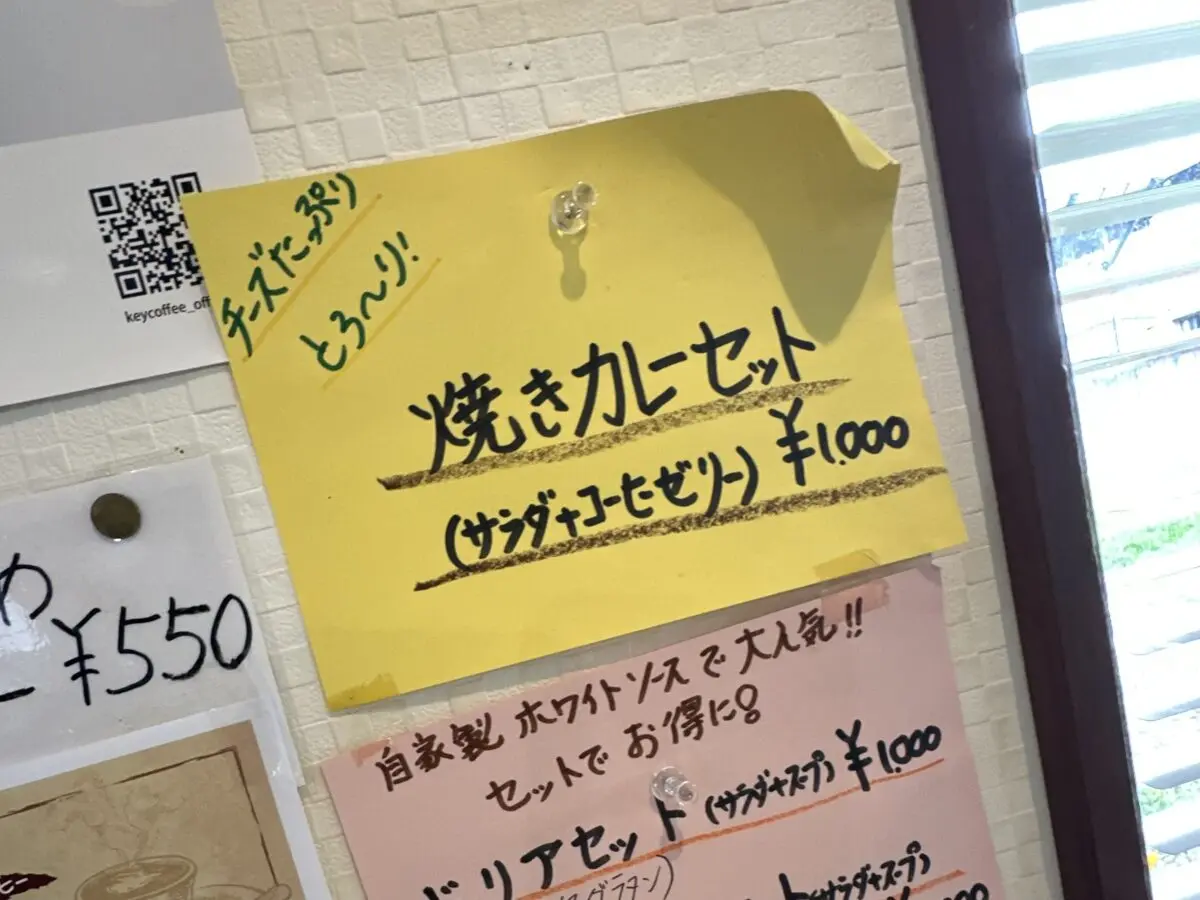 keycoffee_off
チーズたっぷり
とろ〜り!
焼きカレーセット
(サラダ+コーヒーゼリー) ¥1.000
¥550
自家製 ホワイトソースで 大人気!!
セットで お得に!
ドリアセット (サラダ+スープ) ¥1.000
グラタン)
(サラダ+スープ)